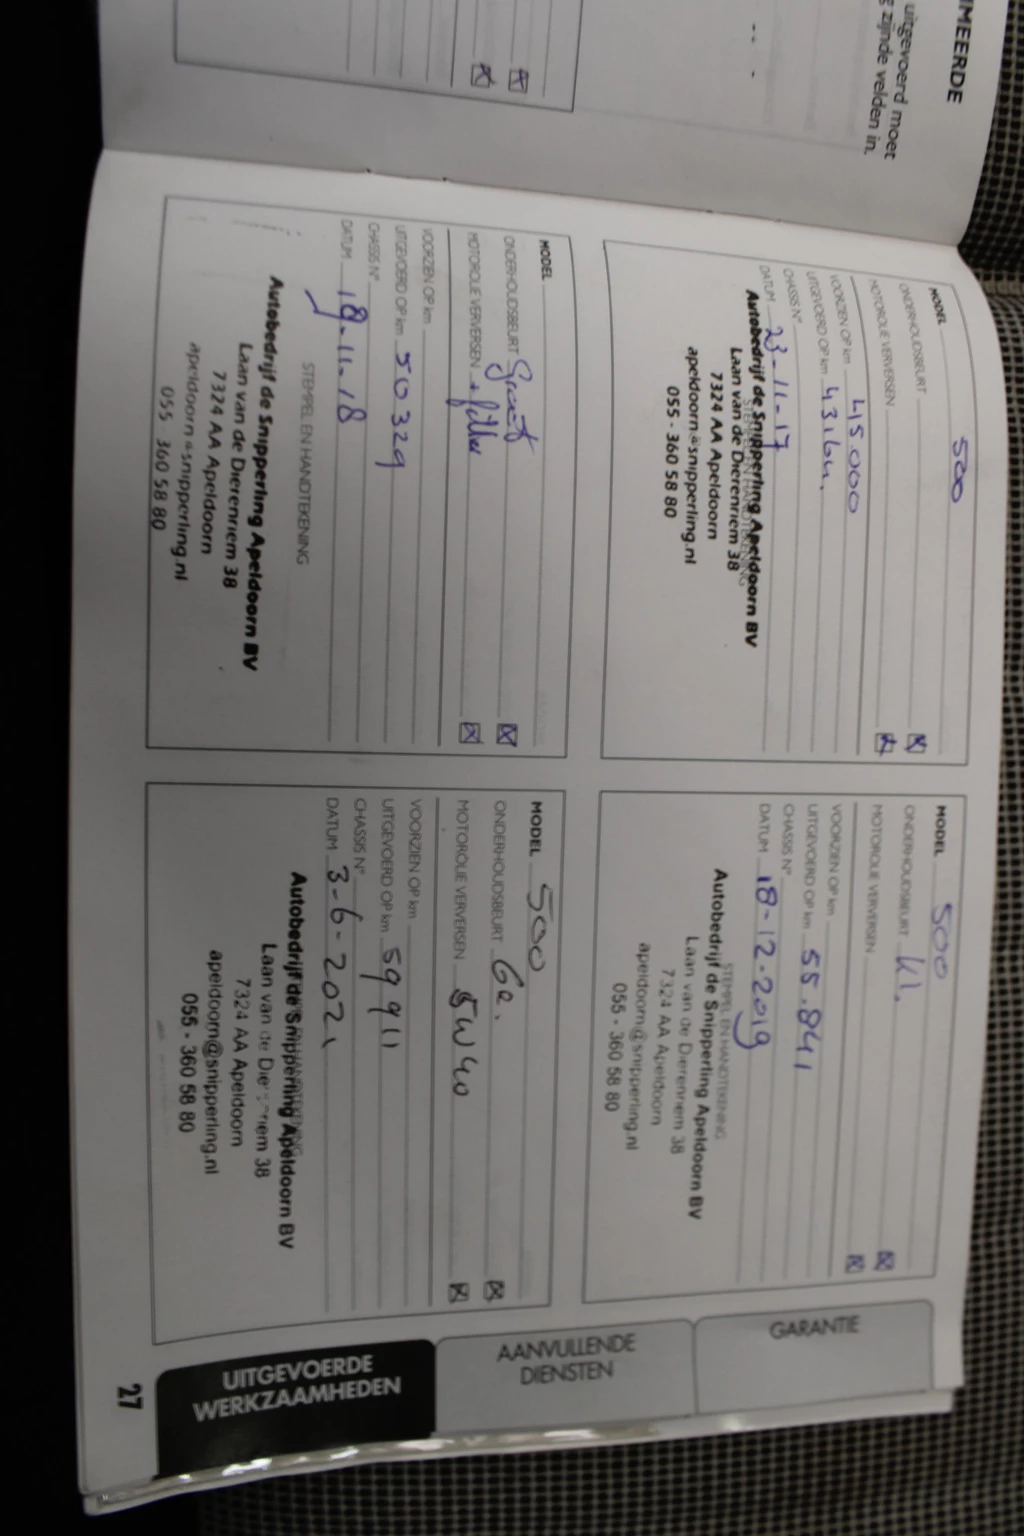 MEERDE
uitgevoerd moet
zijnde velden in.
MODEL 500
ONDERHOUDSBEURT
MOTOROLIE VERVERSEN
VOORZIEN OP km 45.000
UITGEVOERD OP km 43164.
CHASSIS N°
DATUM 23-11-17
STEMPEL EN HANDTEKENING
Autobedrijf de Snipperling Apeldoorn BV
Laan van de Dierenriem 38
7324 AA Apeldoorn
apeldoorn@snipperling.nl
055 - 360 58 80
MODEL 500
ONDERHOUDSBEURT Kl.
MOTOROLIE VERVERSEN
VOORZIEN OP km
UITGEVOERD OP km 55.841
CHASSIS N°
DATUM 18-12-2019
STEMPEL EN HANDTEKENING
Autobedrijf de Snipperling Apeldoorn BV
Laan van de Dierenriem 38
7324 AA Apeldoorn
apeldoorn@snipperling.nl
055 - 360 58 80
MODEL
ONDERHOUDSBEURT Groot
MOTOROLIE VERVERSEN + filter
VOORZIEN OP km
UITGEVOERD OP km 50329
CHASSIS N°
DATUM 19-11-18
STEMPEL EN HANDTEKENING
Autobedrijf de Snipperling Apeldoorn BV
Laan van de Dierenriem 38
7324 AA Apeldoorn
apeldoorn@snipperling.nl
055 - 360 58 80
MODEL 500
ONDERHOUDSBEURT
MOTOROLIE VERVERSEN 5W40
VOORZIEN OP km
UITGEVOERD OP km 59911
CHASSIS N°
DATUM 3-6-2021
Autobedrijf de Snipperling Apeldoorn BV
Laan van de Dierenriem 38
7324 AA Apeldoorn
apeldoorn@snipperling.nl
055 - 360 58 80
GARANTIE
AANVULLENDE
DIENSTEN
UITGEVOERDE
WERKZAAMHEDEN
27